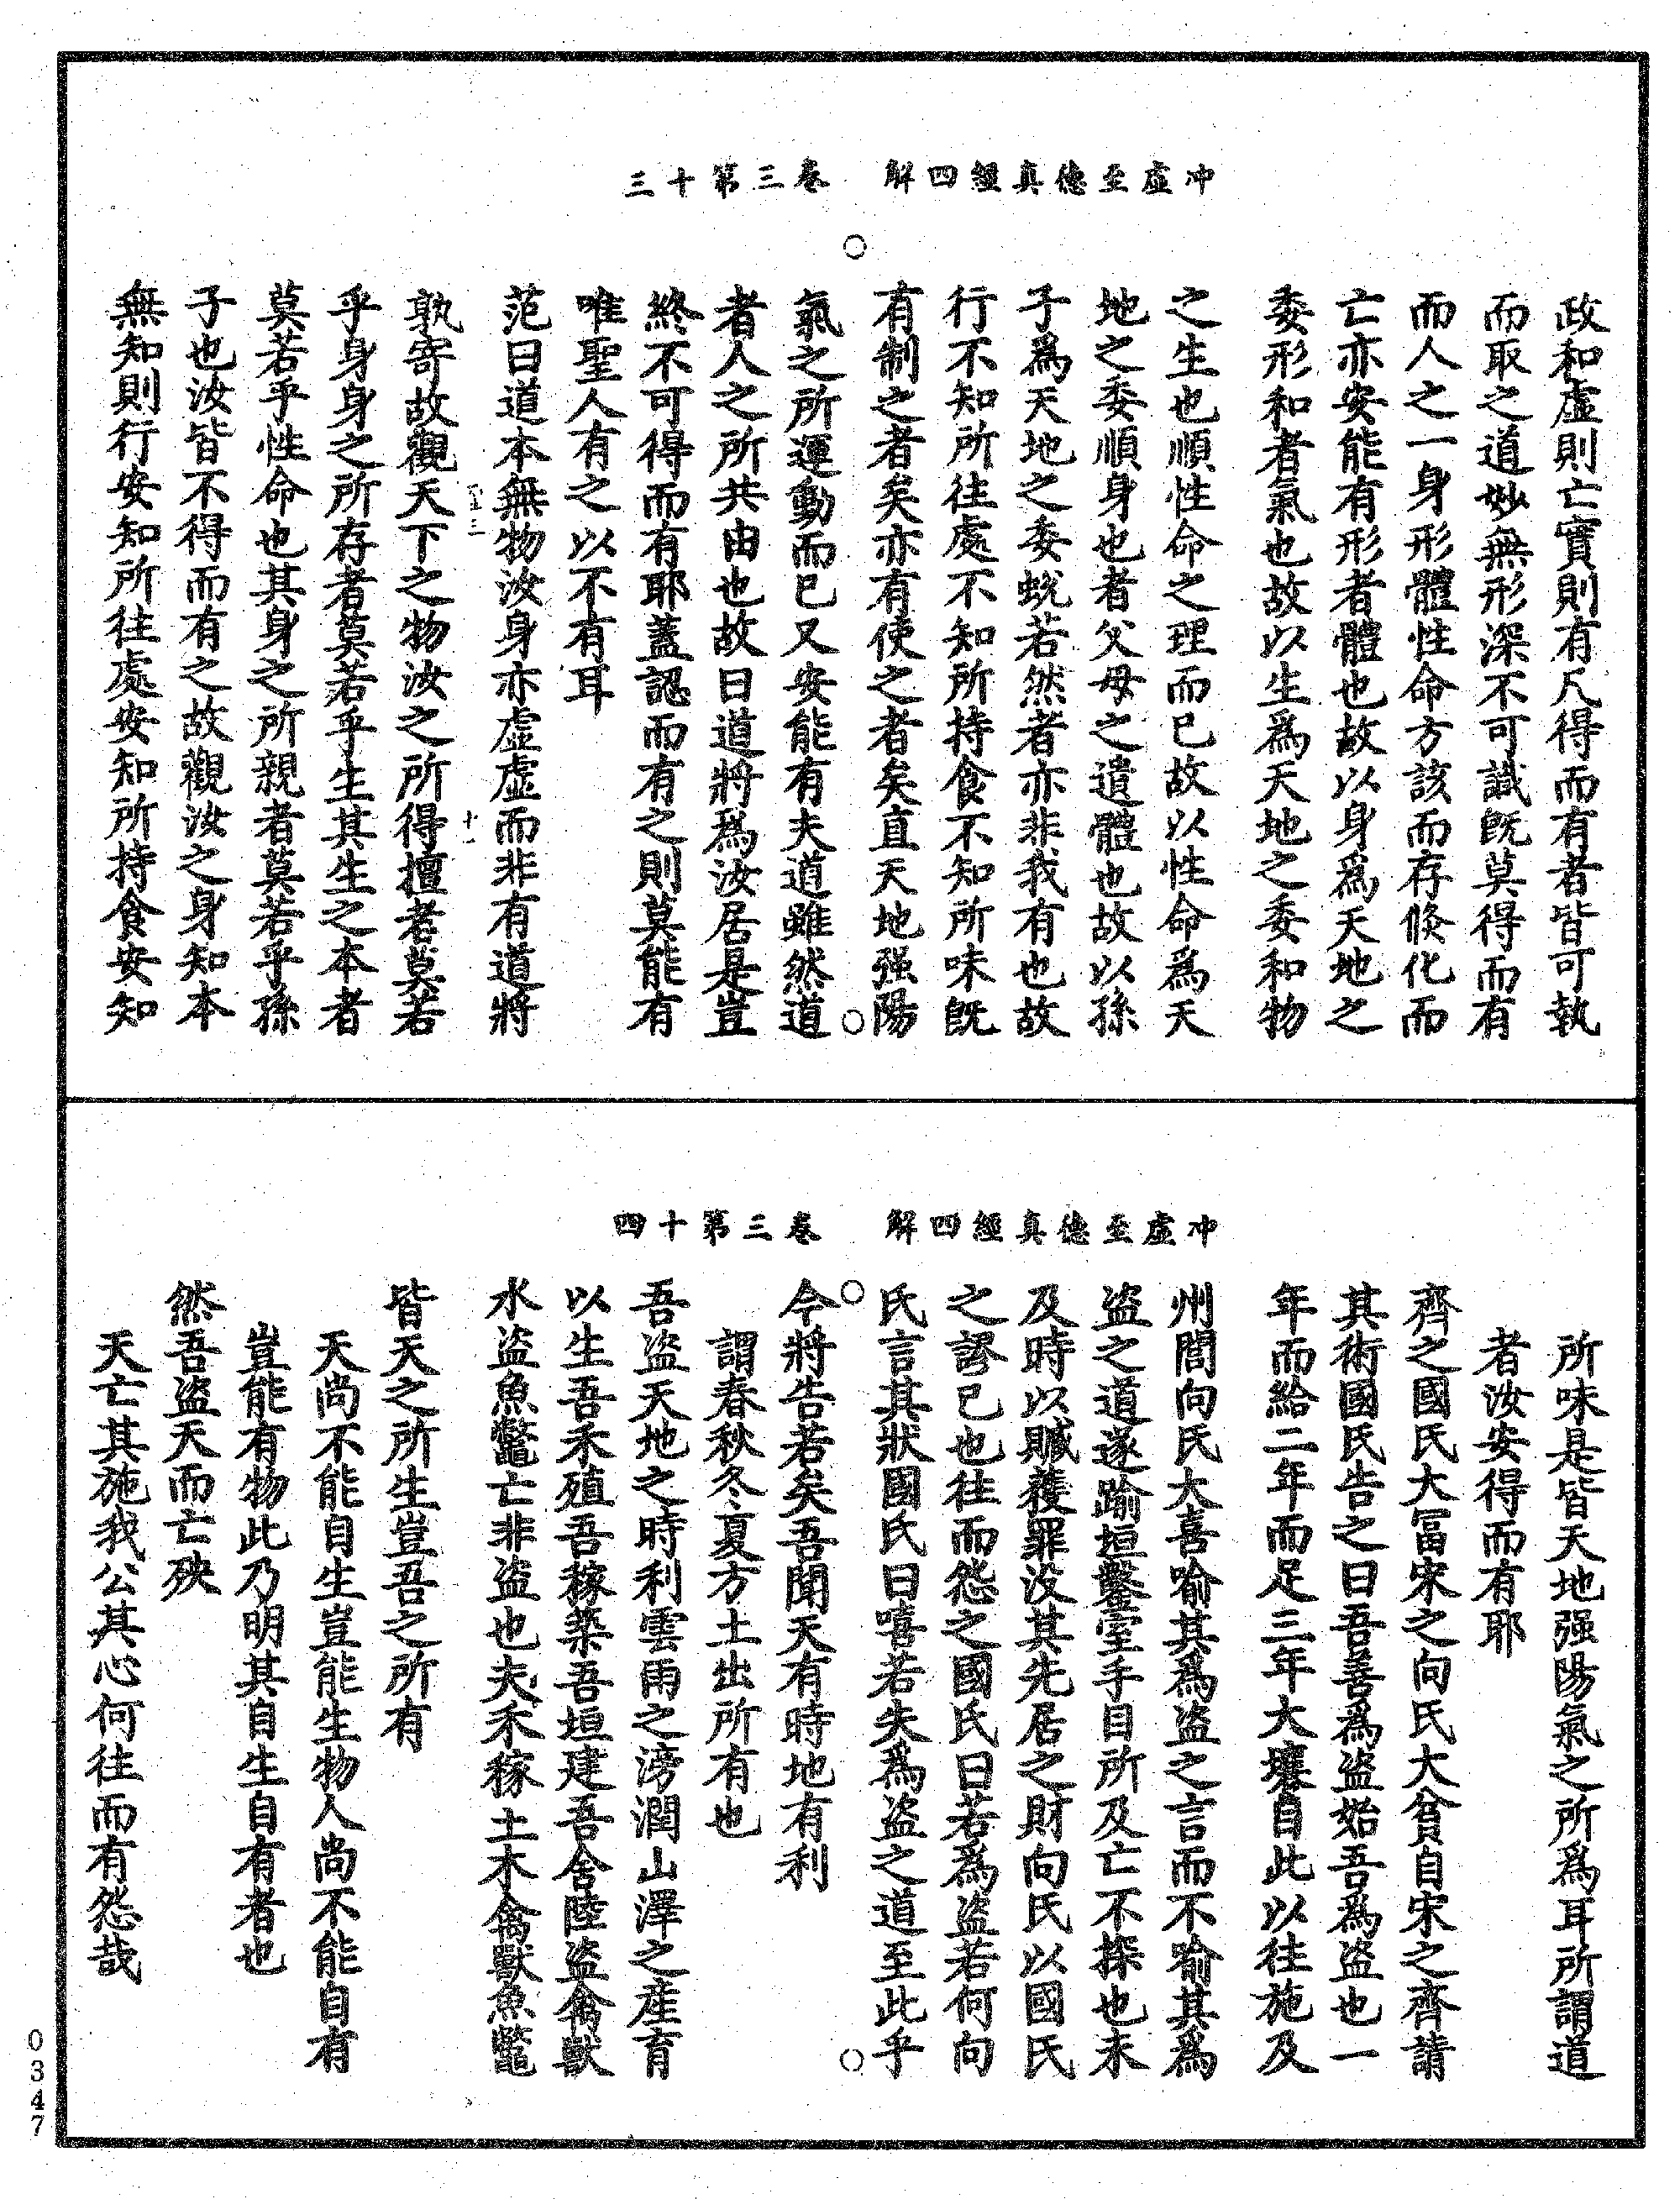 冲虛至德真經四解　卷三第十三
政和虛則亡實則有凡得而有者皆可執
而取之道妙無形深不可識旣莫得而有
而人之一身形體性命方該而存倐化而
亡亦安能有形者體也故以身爲天地之
委形和者氣也故以生爲天地之委和物
之生也順性命之理而已故以性命爲天
地之委順身也者父母之遺體也故以孫
子爲天地之委蛻若然者亦非我有也故
行不知所往處不知所持食不知所味旣
有制之者矣亦有使之者矣直天地强陽
氣之所運動而已又安能有夫道雖然道
者人之所共由也故曰道將爲汝居是豈
終不可得而有耶蓋認而有之則莫能有
唯聖人有之以不有耳
范曰道本無物汝身亦虛虛而非有道將
孰寄故觀天下之物汝之所得擅者莫若
乎身身之所存者莫若乎生其生之本者
莫若乎性命也其身之所親者莫若乎孫
子也汝皆不得而有之故觀汝之身知本
無知則行安知所往處安知所持食安知
冲虛至德真經四解　卷三第十四
所味是皆天地强陽氣之所爲耳所謂道
者汝安得而有耶
齊之國氏大冨宋之向氏大貧自宋之齊請
其術國氏告之曰吾善爲盗始吾爲盗也一
年而給二年而足三年大壤自此以往施及
州閭向氏大喜喻其爲盗之言而不喻其爲
盗之道遂踰垣鑿室手目所及亡不探也未
及時以贓獲罪沒其先居之財向氏以國氏
之謬已也往而怨之國氏曰若爲盗若何向
氏言其狀國氏曰嘻若失爲盗之道至此乎
今將告若矣吾聞天有時地有利
謂春秋冬夏方土出所有也
吾盗天地之時利雲雨之滂潤山澤之産育
以生吾禾殖吾稼築吾垣建吾舍陸盗禽獸
水盗魚鼈亡非盗也夫禾稼土木禽獸魚鼈
皆天之所生豈吾之所有
天尚不能自生豈能生物人尚不能自有
豈能有物此乃明其自生自有者也
然吾盗天而亡殃
天亡其施我公其心何往而有怨哉
0347